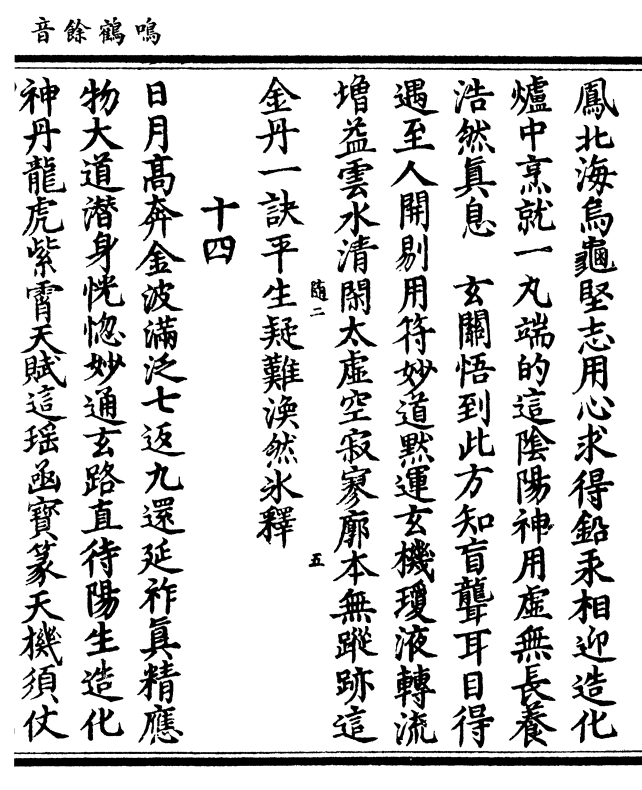 鳴鶴餘音
鳳北海烏龜堅志用心求得鉛汞相迎造化
爐中烹就一丸端的這陰陽神用虛無長養
浩然眞息　玄關悟到此方知盲聾耳目得
遇至人開剔用符妙道默運玄機瓊液轉流
增益雲水清閑太虛空寂寥廓本無蹤跡這
隨二
五
金丹一訣平生疑難渙然氷釋
十四
日月高奔金波滿泛七返九還延祚眞精應
物大道潛身恍惚妙通玄路直待陽生造化
神丹龍虎紫霄天賦這瑶凾寶篆天機須仗